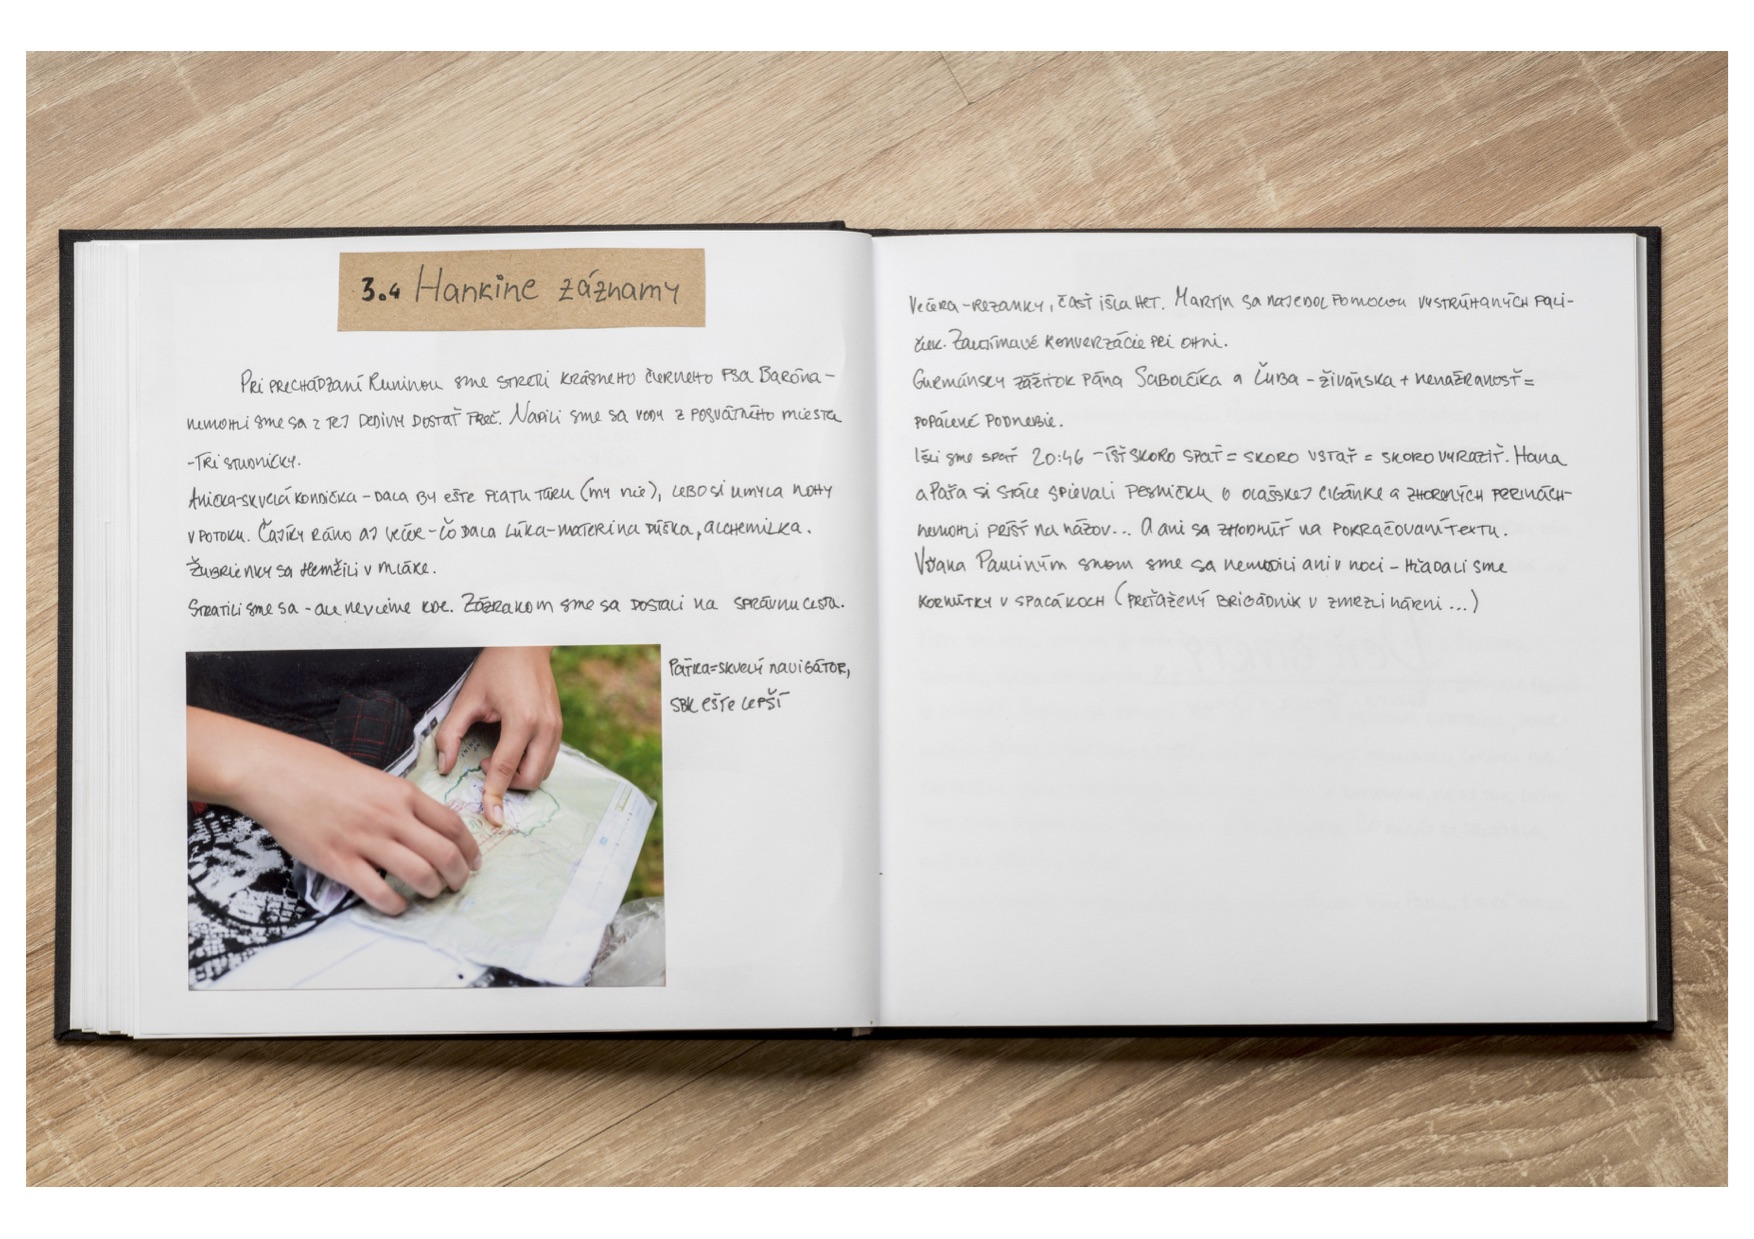 3.4 Hankine záznamy
Pri prechádzaní Runinou sme stretli krásneho čierneho psa Baróna -
nemohli sme sa z tej dediny dostať preč. Napili sme sa vody z posvätného miesta
- Tri studničky.
Anička - skvelá kondička - dala by ešte piatu túru (my nie), lebo si umyla nohy
v potoku. Čajíky ráno aj večer - čo dala lúka - materina dúška, alchemilka.
Žubrienky sa hemžili v mláke.
Stratili sme sa - ale nevieme kde. Zázrakom sme sa dostali na správnu cestu.
Paťka = skvelý navigátor,
SBK ešte lepší
Večera - rezanky, časť išla het. Martin sa najedol pomocou vystrúhaných pali-
čiek. Zaujímavé konverzácie pri ohni.
Gurmánsky zážitok pána Sabolčíka a Ľuba - živánska + nenažranosť =
popálené podnebie.
Išli sme spať 20:46 - ísť skoro spať = skoro vstať = skoro vyraziť. Hana
a Paťa si stále spievali pesničku o olašskej cigánke a zhorených perinách -
nemohli prísť na názov... A ani sa zhodnúť na pokračovaní textu.
Vďaka Pauliným snom sme sa nenudili ani v noci - hľadali sme
kornútky v spacákoch (preťažený brigádnik v zmrzlinárni...)